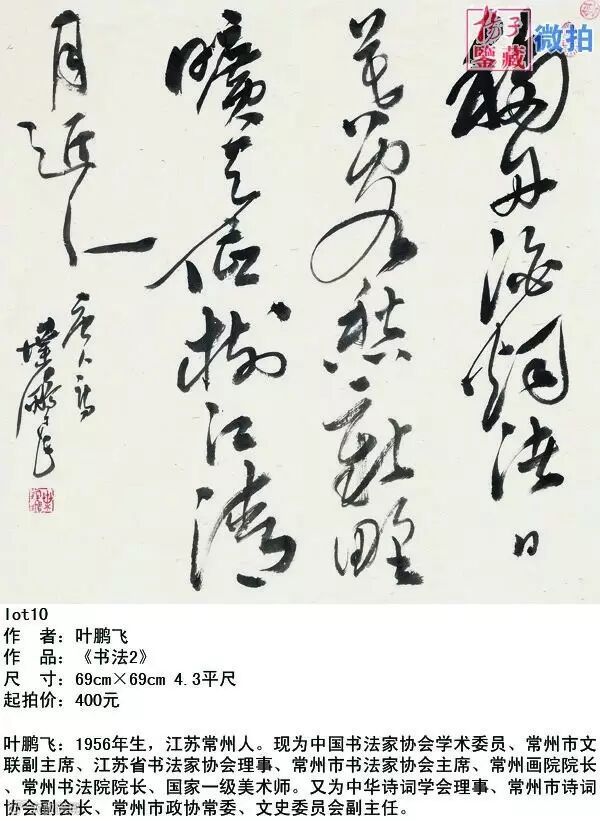 揚子
鑒藏
微拍
移舟泊烟渚日
暮客愁新野
曠天低樹江清
月近人
唐人詩
葉鵬飛
lot10
作 者：叶鹏飞
作 品：《书法2》
尺 寸：69cm×69cm 4.3平尺
起拍价：400元
叶鹏飞：1956年生，江苏常州人。现为中国书法家协会学术委员、常州市文
联副主席、江苏省书法家协会理事、常州市书法家协会主席、常州画院院长
、常州书法院院长、国家一级美术师。又为中华诗词学会理事、常州市诗词
协会副会长、常州市政协常委、文史委员会副主任。